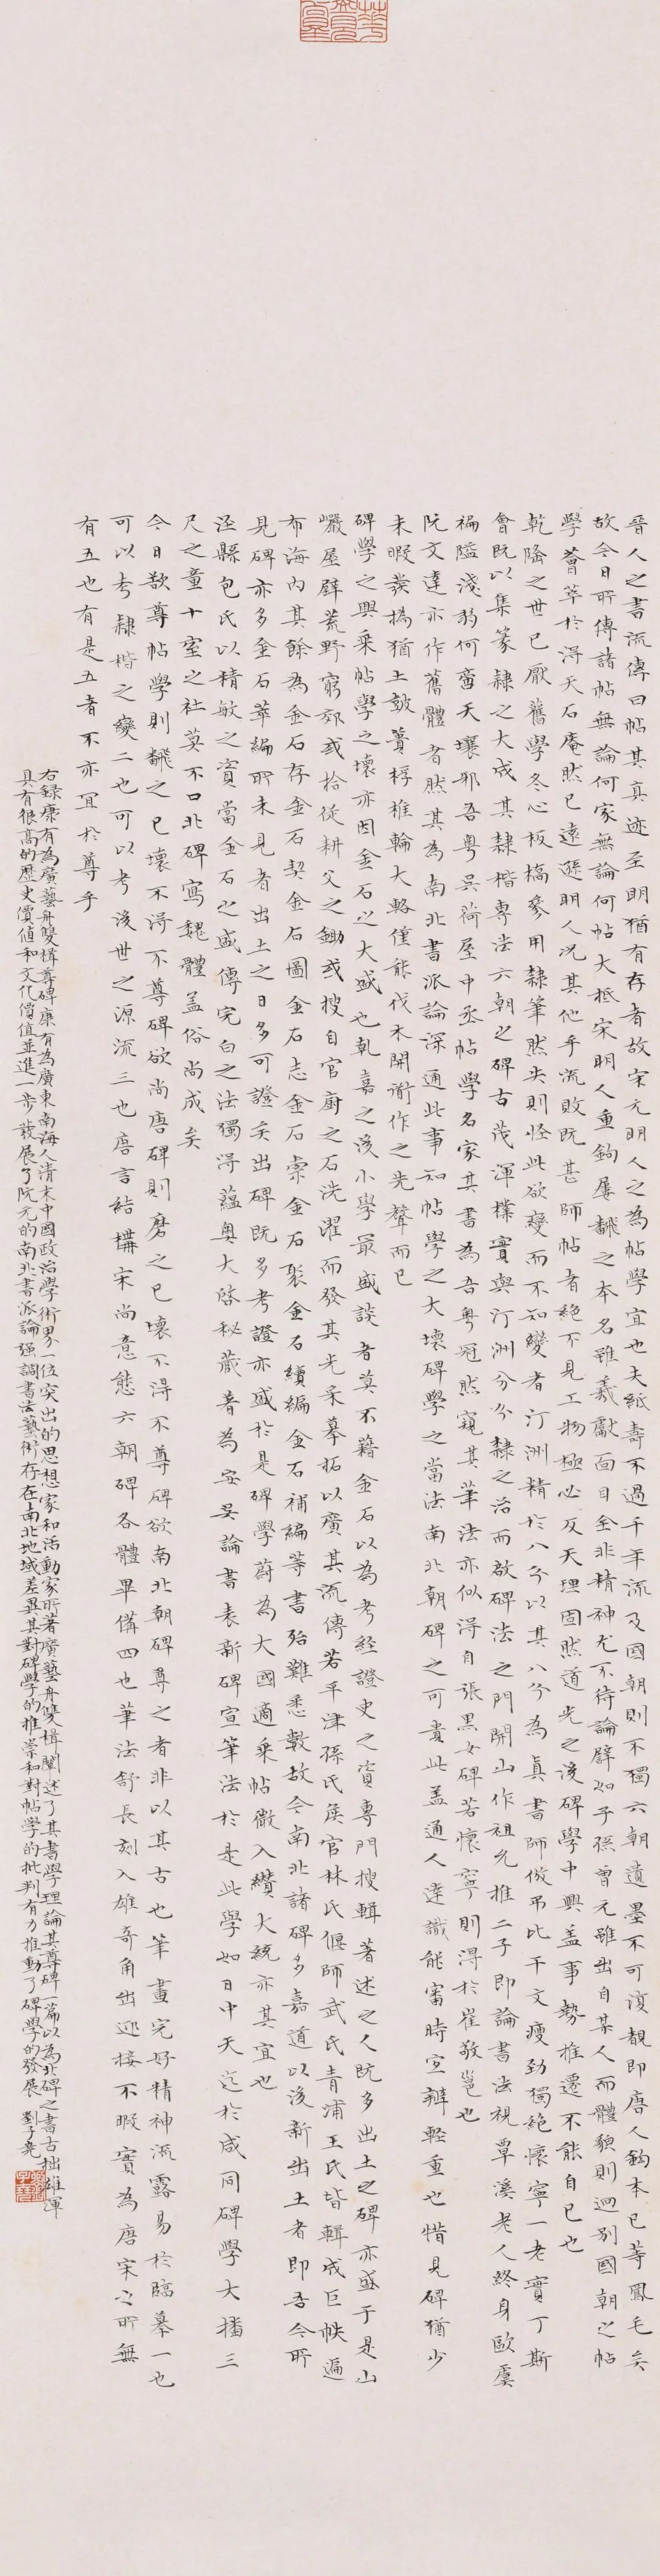 晉人之書流傳曰帖其真迹至明猶有存者故宋元明人之為帖學宜也夫紙壽不過千年流及國朝則不獨六朝遺墨不可復覩即唐人鈎本已等鳳毛矣
故今日所傳諸帖無論何家無論何帖大抵宋明人重鉤屢翻之本名雖羲獻面目全非精神尤不待論譬如子孫曾元雖出自某人而體貌則迥別國朝之帖
學薈萃於得天石庵然已遠遜明人况其他乎流敗既甚師帖者絕不見工物極必反天理固然道光之後碑學中興盖事勢推遷不能自已也
乾隆之世已厭舊學冬心板橋參用隸筆然失則怪此欲變而不知變者汀洲精於八分以其八分為真書師倣弔比干文瘦勁獨絕懷寧一老實丁斯
會既以集篆隸之大成其隸楷專法六朝之碑古茂渾樸實與汀洲分分隸之治而啟碑法之門開山作祖允推二子即論書法視覃溪老人終身歐虞
褊隘淺豹何啻天壤邪吾粵吳荷屋中丞帖學名家其書為吾粵冠然窺其筆法亦似得自張黑女碑若懷寧則得於崔敬邕也
阮文達亦作舊體者然其為南北書派論深通此事知帖學之大壞碑學之當法南北朝碑之可貴此盖通人達識能審時宜辨輕重也惜見碑猶少
未暇發撝猶土皷蕢桴椎輪大輅僅能伐木開道作之先聲而已
碑學之興乘帖學之壞亦因金石之大盛也乹嘉之後小學最盛談者莫不藉金石以為考經證史之資專門搜輯著述之人既多出土之碑亦盛于是山
巖屋壁荒野窮郊或拾從耕父之鋤或搜自官厨之石洗濯而發其光采摹拓以廣其流傳若平津孫氏侯官林氏偃師武氏青浦王氏皆輯成巨帙遍
布海內其餘為金石存金石契金石圖金石志金石索金石聚金石續編金石補編等書殆難悉數故今南北諸碑多嘉道以後新出土者即吾今所
見碑亦多金石萃編所未見者出土之日多可證矣出碑既多考證亦盛於是碑學蔚為大國適乘帖微入纘大統亦其宜也
涇縣包氏以精敏之資當金石之盛傳完白之法獨得蘊奧大啓秘藏著為安吳論書表新碑宣筆法於是此學如日中天迄於咸同碑學大播三
尺之童十室之社莫不口北碑寫魏體盖俗尚成矣
今日欲尊帖學則翻之已壞不得不尊碑欲尚唐碑則磨之已壞不得不尊碑欲南北朝碑尊之者非以其古也筆畫完好精神流露易於臨摹一也
可以考隸楷之變二也可以考後世之源流三也唐言結構宋尚意態六朝碑各體畢備四也筆法舒長刻入雄奇角出迎接不暇實為唐宋之所無
有五也有是五者不亦宜於尊乎
右錄康有為廣藝舟雙楫尊碑康有為廣東南海人清末中國政治學術界一位突出的思想家和活動家所著廣藝舟雙楫闡述了其書學理論其尊碑一篇以為北碑之書古拙雄渾
具有很高的歷史價值和文化價值並進一步發展了阮元的南北書派論強調書法藝術存在南北地域差異其對碑學的推崇和對帖學的批判有力推動了碑學的發展 劉子堯